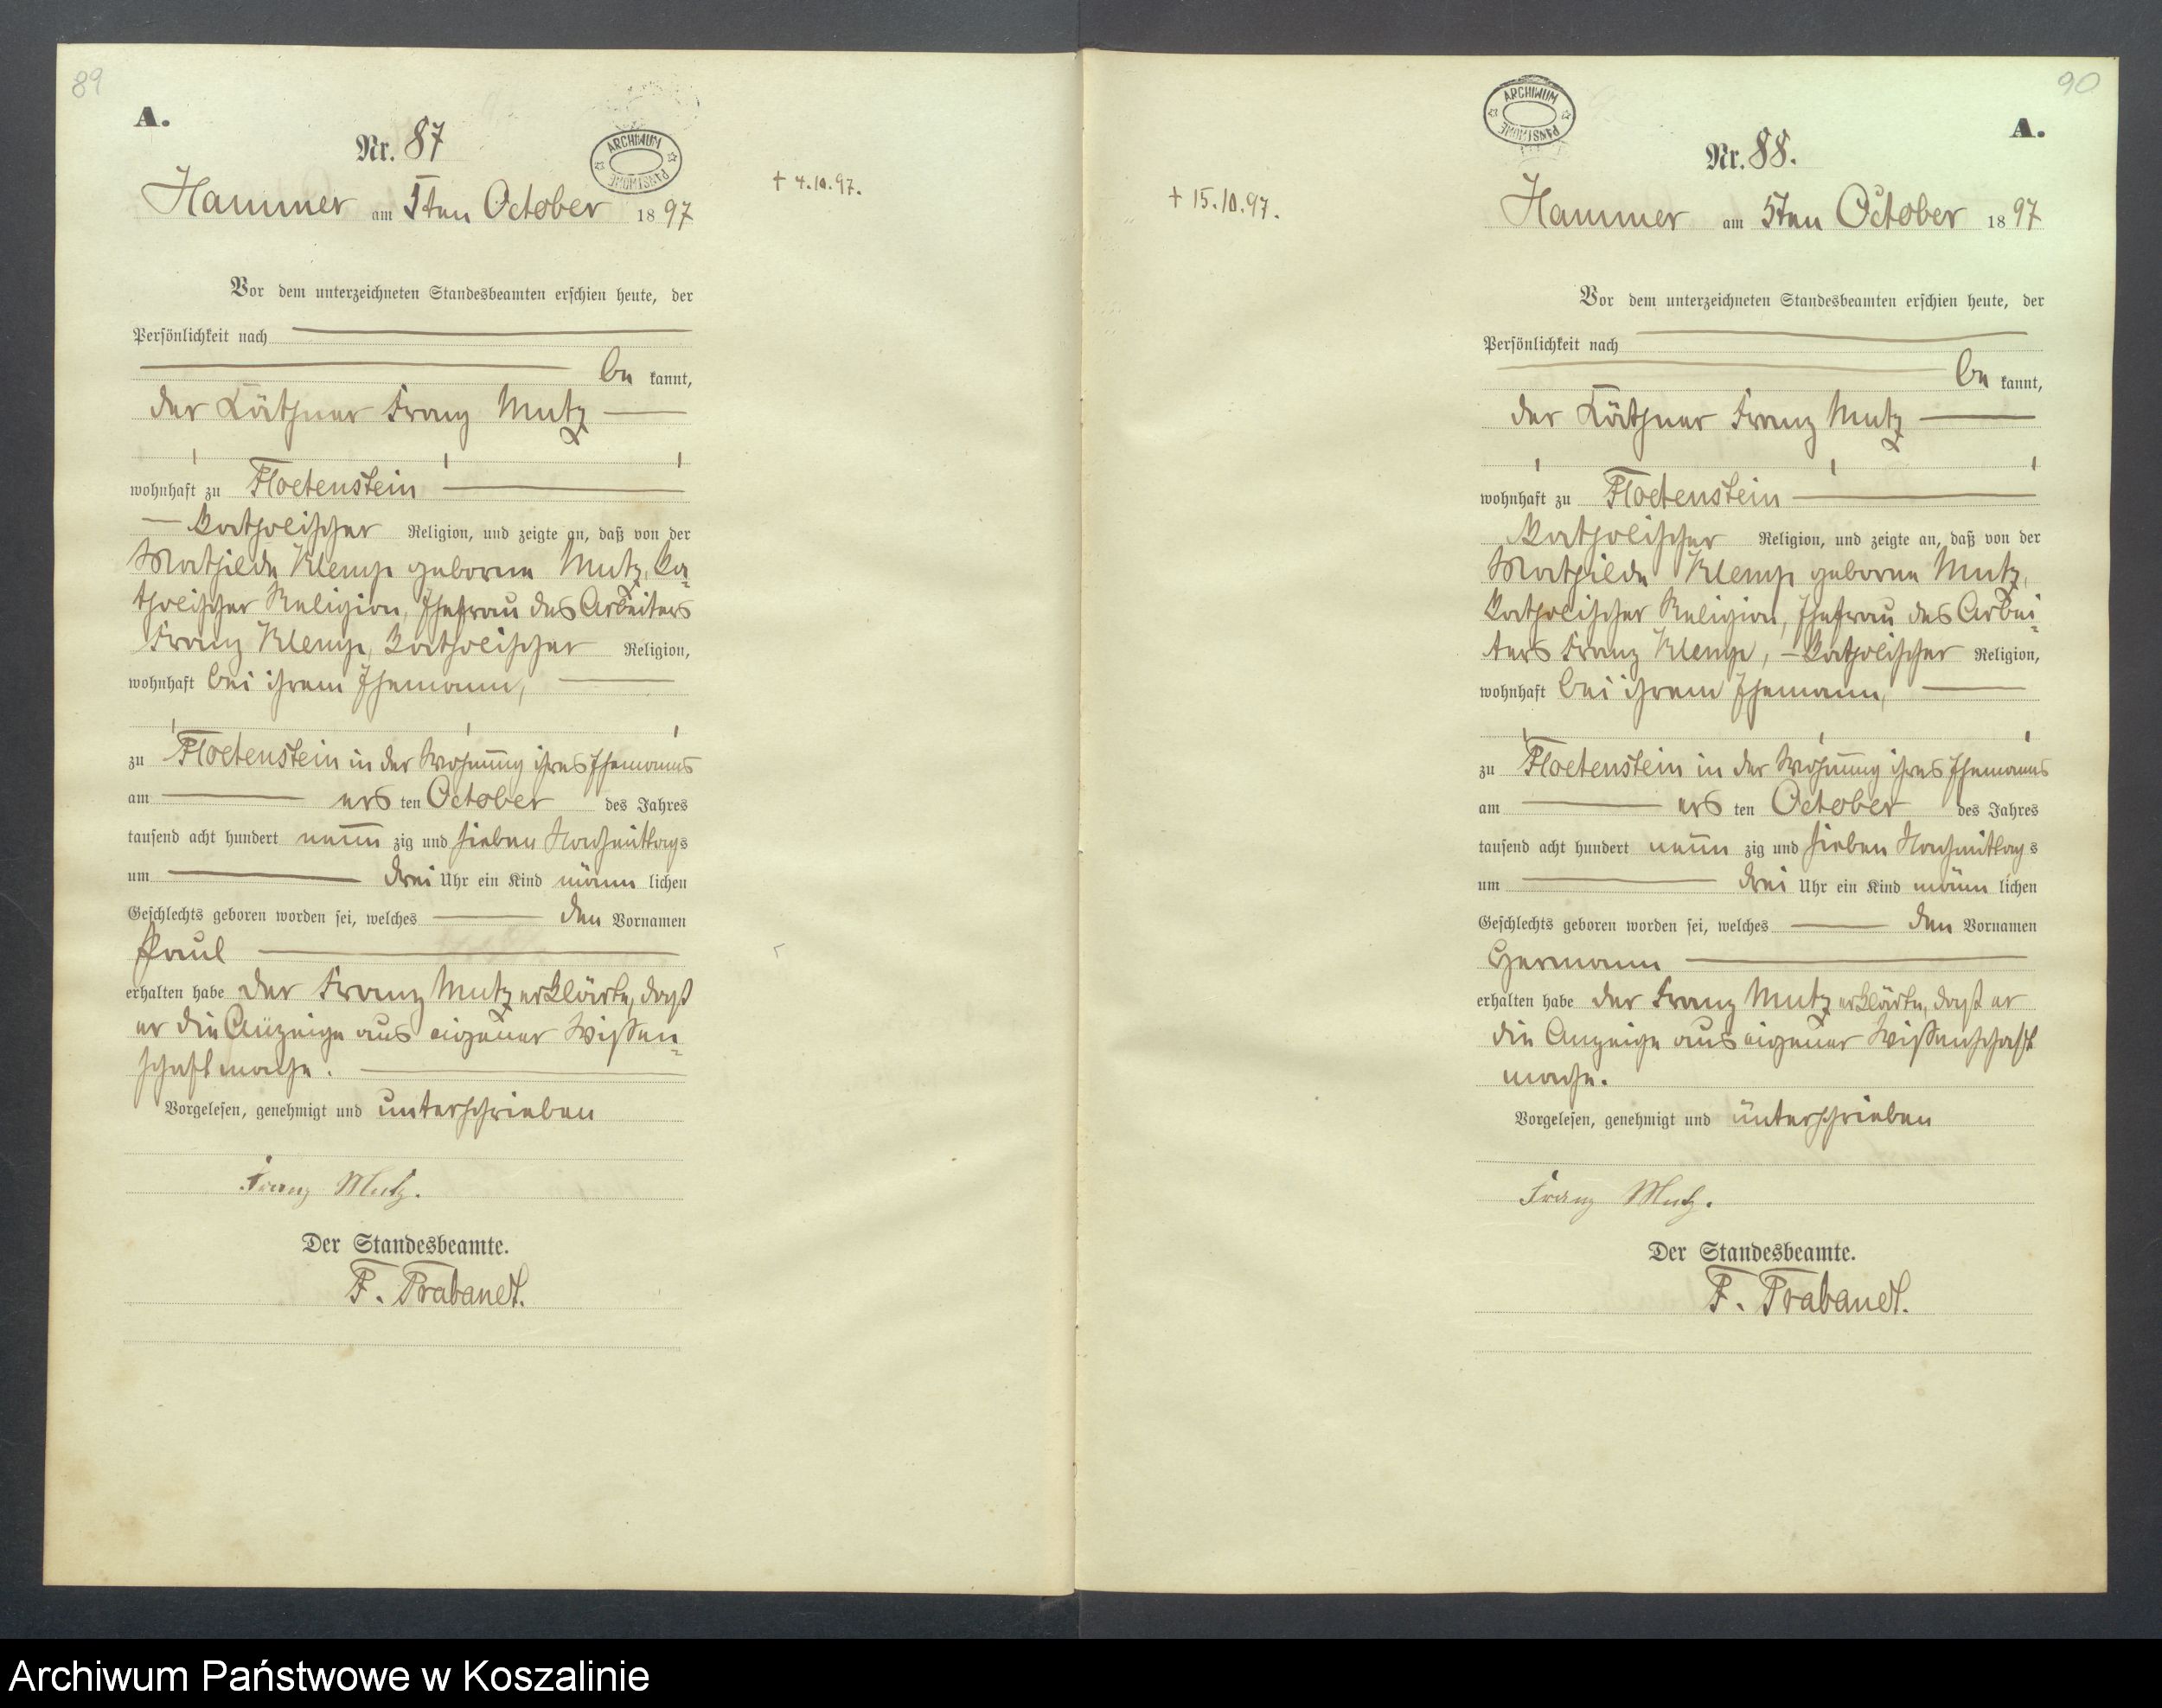 89
A.
Nr. 87
ARCHIWUM PAŃSTWOWE
† 4.10.97.
Hammer am 5ten October 1897
Vor dem unterzeichneten Standesbeamten erschien heute, der
Persönlichkeit nach
be kannt,
der Käthner Franz Mutz
wohnhaft zu Floetenstein
katholischer Religion, und zeigte an, daß von der
Mathilde Klemp geborene Mutz, ka-
tholischer Religion, Ehefrau des Arbeiters
Franz Klemp, katholischer Religion,
wohnhaft bei ihrem Ehemann,
zu Floetenstein in der Wohnung ihres Ehemanns
am ers ten October des Jahres
tausend acht hundert neun zig und sieben Nachmittags
um drei Uhr ein Kind männ lichen
Geschlechts geboren worden sei, welches den Vornamen
Paul
erhalten habe der Franz Mutz erklärte, daß
er die Anzeige aus eigener Wissen-
schaft mache.
Vorgelesen, genehmigt und unterschrieben
Franz Mutz.
Der Standesbeamte.
F. Trabandt.
90
A.
ARCHIWUM PAŃSTWOWE
Nr. 88.
† 15.10.97.
Hammer am 5ten October 1897
Vor dem unterzeichneten Standesbeamten erschien heute, der
Persönlichkeit nach
be kannt,
der Käthner Franz Mutz
wohnhaft zu Floetenstein
katholischer Religion, und zeigte an, daß von der
Mathilde Klemp geborne Mutz,
katholischer Religion, Ehefrau des Arbei-
ters Franz Klemp, katholischer Religion,
wohnhaft bei ihrem Ehemann,
zu Floetenstein in der Wohnung ihres Ehemanns
am ers ten October des Jahres
tausend acht hundert neun zig und sieben Nachmittag s
um drei Uhr ein Kind männ lichen
Geschlechts geboren worden sei, welches den Vornamen
Hermann
erhalten habe der Franz Mutz erklärte, daß er
die Anzeige aus eigener Wissenschaft
mache.
Vorgelesen, genehmigt und unterschrieben
Franz Mutz.
Der Standesbeamte.
F. Trabandt.
Archiwum Państwowe w Koszalinie